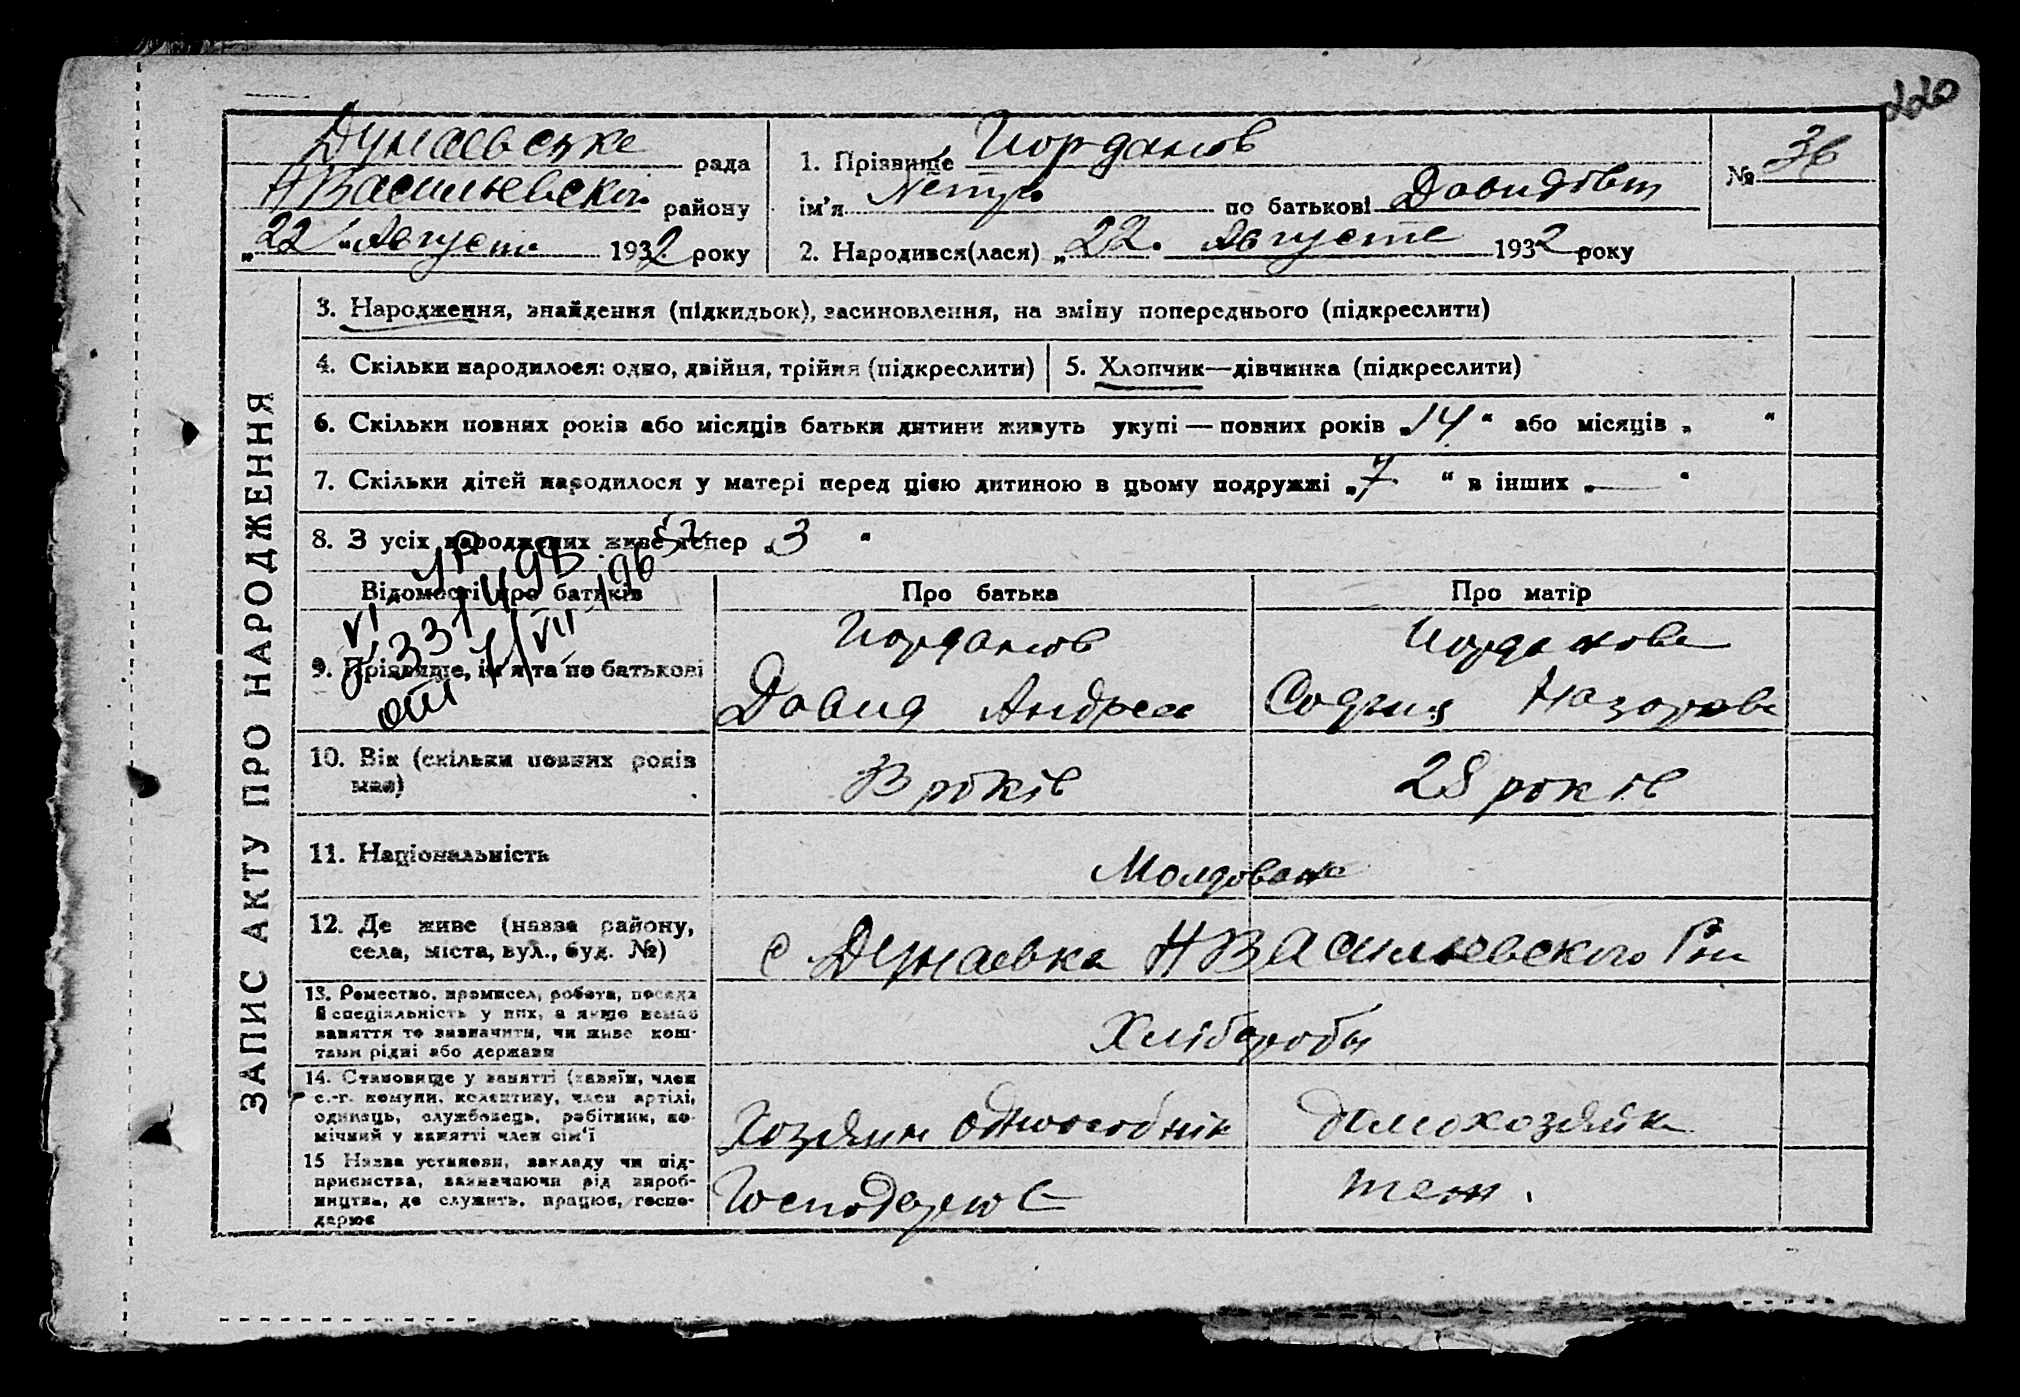 220
Дунаевське рада
НВасильевског району
„22“ Августа 1932 року
1. Прізвище Иорданов
ім'я по батькові Давидовіч
2. Народився(лася) „22“ Августа 1932 року
№ 36
ЗАПИС АКТУ ПРО НАРОДЖЕННЯ
3. Народження, знайдення (підкидьок), засиновлення, на зміну попереднього (підкреслити)
4. Скільки народилося: одно, двійня, трійня (підкреслити)
5. Хлопчик—дівчинка (підкреслити)
6. Скільки повних років або місяців батьки дитини живуть укупі — повних років „14“ або місяців „ “
7. Скільки дітей народилося у матері перед цією дитиною в цьому подружжі „7“ в інших „—“
8. З усіх народжених живе тепер „3“
Відомості про батьків
Про батька
Про матір
9. Прізвище, ім'я та по батькові
Иорданов
Давид Андрее
Иорданова
София Назарова
10. Вік (скільки повних років має)
років
28 років
11. Національність
Молдоване
12. Де живе (назва району,
села, міста, вул., буд. №)
с Дунаевка НВасильевского Рни
13. Ремество, промисел, робота, посада
й спеціяльність у них, а якщо немає
заняття то визначити, чи живе кош-
тами рідні або держави
Хлібароби
14. Становище у занятті (хазяїн, член
с.-г. комуни, колективу, член артілі,
одинець, службовець, робітник, по-
мічний у занятті член сім'ї
Хозяин одноосібнік
домохозяйка
15 Назва установи, закладу чи під-
приємства, зазначаючи рід вироб-
ництва, де служить, працює, госпо-
дарює
Господарює
теж.